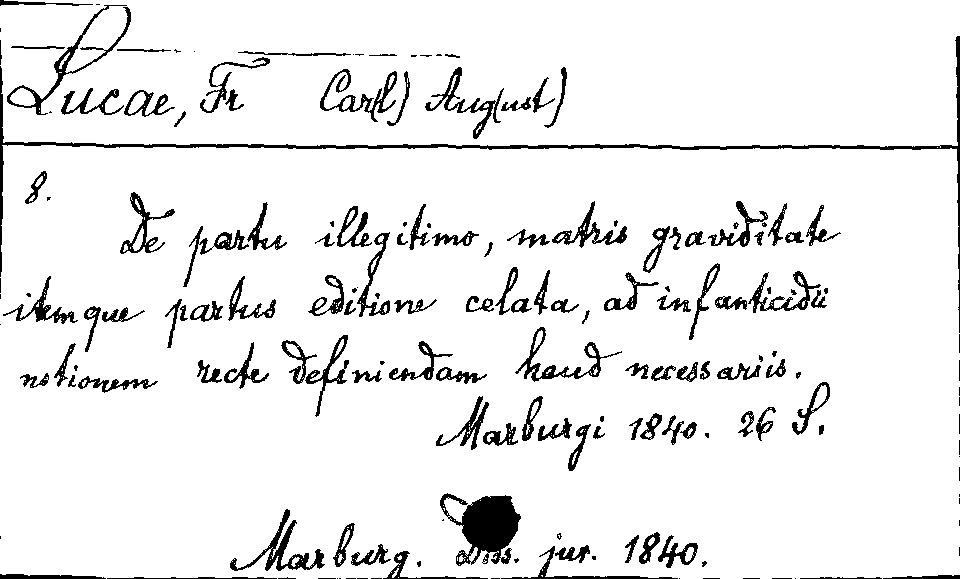 Lucae, Fr Car(l) Aug(ust)
8.
De partu illegitimo, matris graviditate
itemque partus editione celata, ad infanticidii
notionem recte definiendam haud necessariis.
Marburgi 1840. 26 S.
Marburg. Diss. jur. 1840.